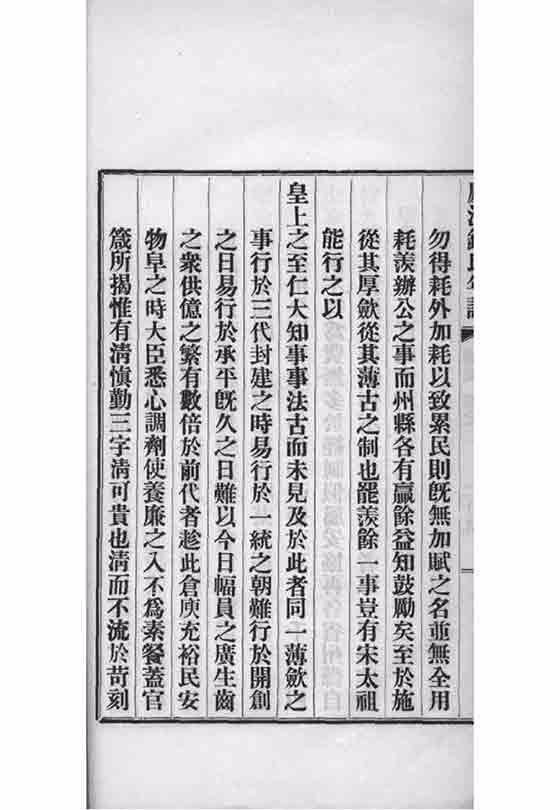 錢氏年譜
勿得耗外加耗以致累民則旣無加賦之名並無全用
耗羨辦公之事而州縣各有贏餘益知鼓勵矣至於施
從其厚斂從其薄古之制也罷羨餘一事豈有宋太祖
能行之以
皇上之至仁大知事事法古而未見及於此者同一薄斂之
事行於三代封建之時易行於一統之朝難行於開創
之日易行於承平旣久之日難以今日幅員之廣生齒
之衆供億之繁有數倍於前代者趁此倉庾充裕民安
物阜之時大臣悉心調劑使養廉之入不爲素餐蓋官
箴所揭惟有淸愼勤三字淸可貴也淸而不流於苛刻